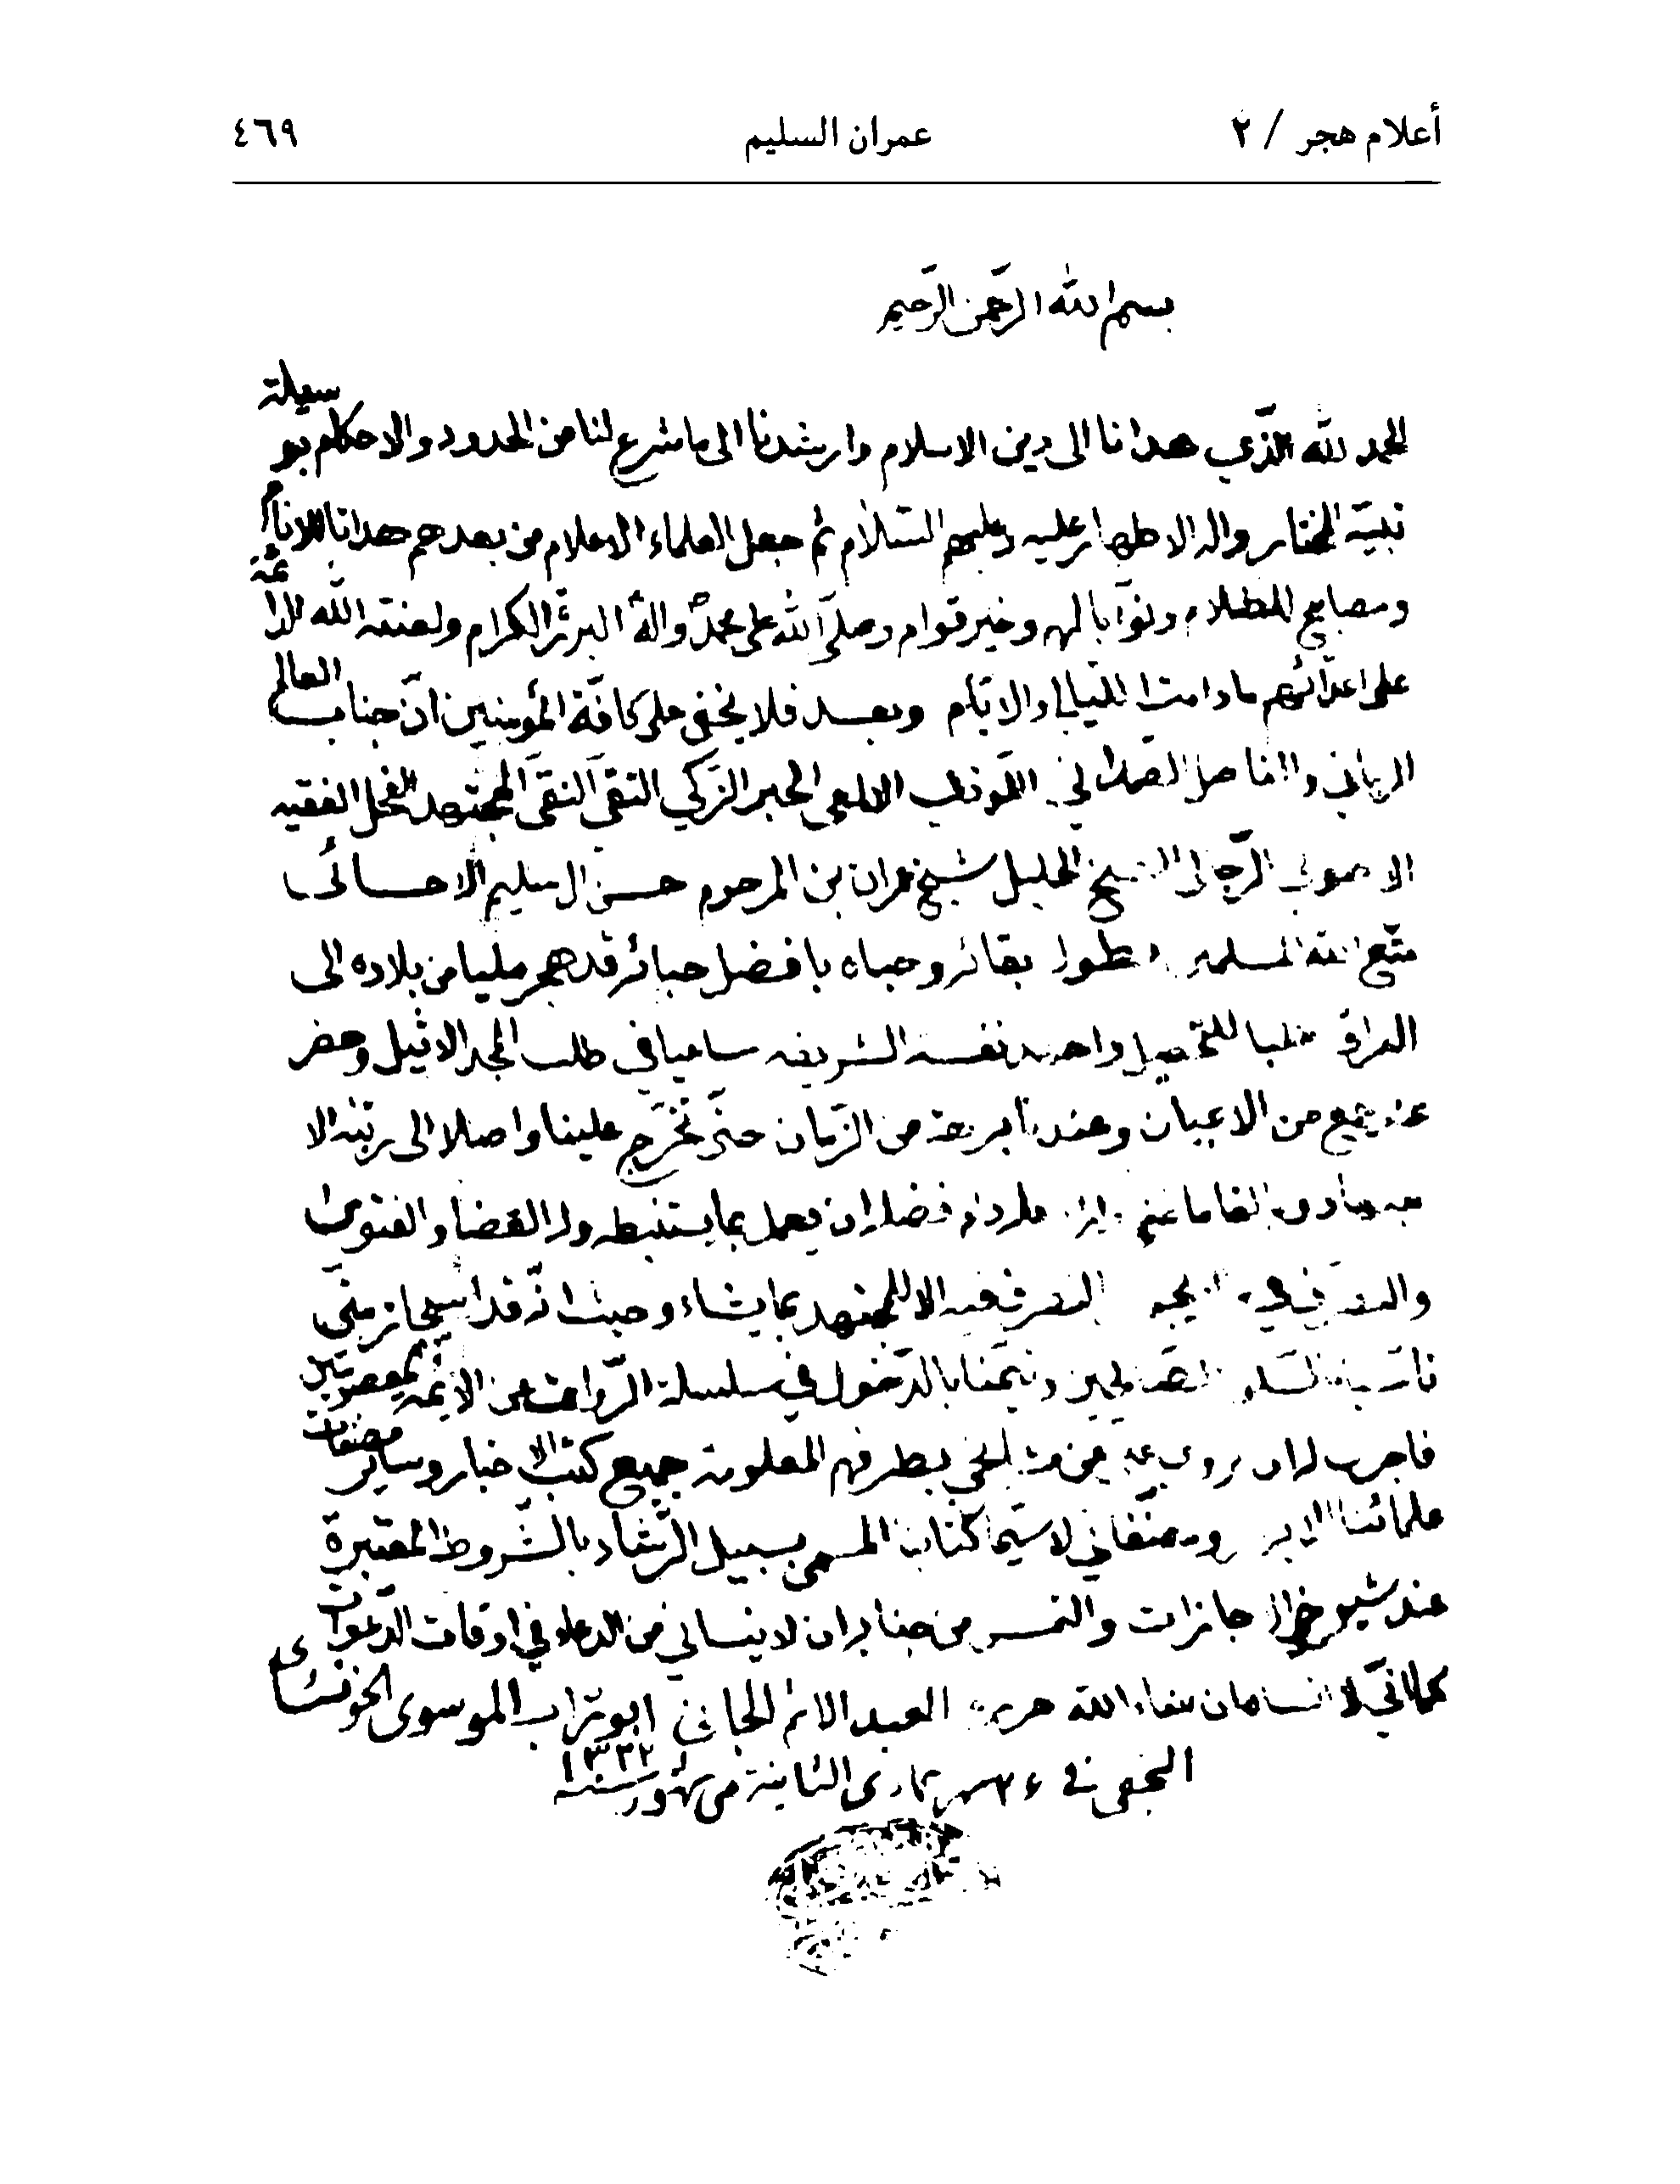 أعلام هجر / ٢ عمران السليم ٤٦٩
بسم الله الرّحمن الرّحيم
الحمد لله الّذي هدانا الى دين الاسلام وارشدنا الى ما شرع لنا من الحدود والاحكام بتوسيلة
نبيّه المختار واله الاطهار عليه وعليهم السّلام ثم جعل العلماء الاعلام من بعدهم هداتا للانام
ومصابيح للظلام ونوّابا لهم وخير قوام وصلّى الله على محمّد وآله البررة الكرام ولعنة الله الدائمة
على اعدائهم ما دامت الليالي والايّام وبعد فلا يخفى على كافّة المؤمنين انّ جناب العالم
الرباني والفاضل الصمداني اللوذعي الالمعي الحبر الزكي التقي النقي المجتهد الفحل الفقيه
الاصولي الرّجالى الشيخ الجليل شيخ عمران بن المرحوم حسن ال سليم الاحسائى
متّع الله المسلمين بطول بقائه وحباه بافضل حبائه قد هجر مليا من بلاده الى
العراق طلبا للتحصيل واجهد نفسه الشريفه ساعيا في طلب المجد الاثيل وحضر
عند جمع من الاعيان وعندنا برهة من الزّمان حتّى تخرّج علينا واصلا الى رتبة الا
فضله ان يعمل بما يستنبطه وله القضاء والفتوى
التصرف فيه الا للمجتهد بما يشاء وحيث انّه قد استجاز منّي
الصالحين وتيمّنا بالدّخول في سلسلة الرّواة عن الائمّة المعصومين
فاجزت له ان يروي عنّي عن مشايخي بطرقهم المعلومة جميع كتب الاخبار وساير مصنفات
علمائنا الابرار ومصنّفاتي لا سيّما كتابنا المسمى بسبيل الرّشاد بالشّروط المعتبرة
عند شيوخ الاجازات والتمس من جنابه ان لا ينساني من الدعاء في اوقات الدّعوات
كما انّي لا انساه ان شاء الله حرره العبد الاثم الجاني ابو تراب الموسوى الخونساري
النجفي في ٢٤ شهر جمادى الثانية من شهور سنة ١٣٣٢